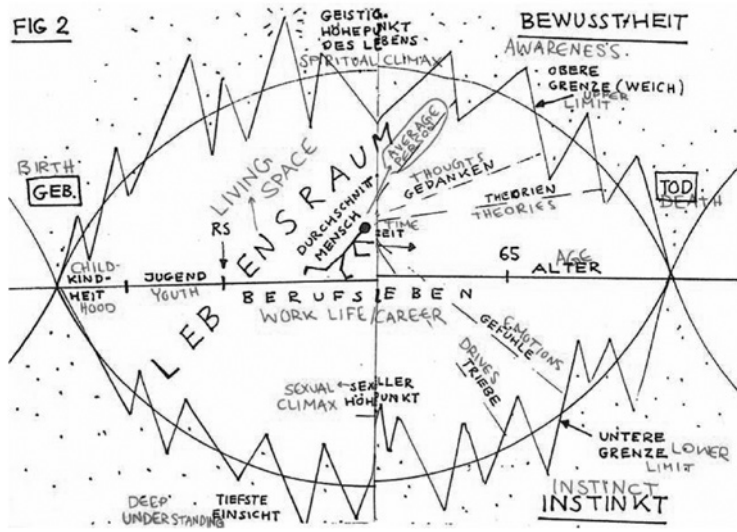 FIG 2
GEISTIG.
HÖHEPUNKT
DES LEBENS
SPIRITUAL CLIMAX
BEWUSSTHEIT
AWARENESS
OBERE
GRENZE (WEICH)
UPPER
LIMIT
BIRTH
GEB.
LIVING
SPACE
LEBENSRAUM
AVERAGE
PERSON
DURCHSCHNITT
MENSCH
THOUGTS
GEDANKEN
THEORIEN
THEORIES
TOD
DEATH
RS
TIME
ZEIT
CHILD-
KIND-
HEIT
HOOD
JUGEND
YOUTH
65
AGE
ALTER
BERUFSLEBEN
WORK LIFE/CAREER
EMOTIONS
GEFÜHLE
DRIVES
TRIEBE
SEXUAL
CLIMAX
SEXUELLER
HÖHEPUNKT
UNTERE
GRENZE
LOWER
LIMIT
DEEP
UNDERSTANDING
TIEFSTE
EINSICHT
INSTINCT
INSTINKT